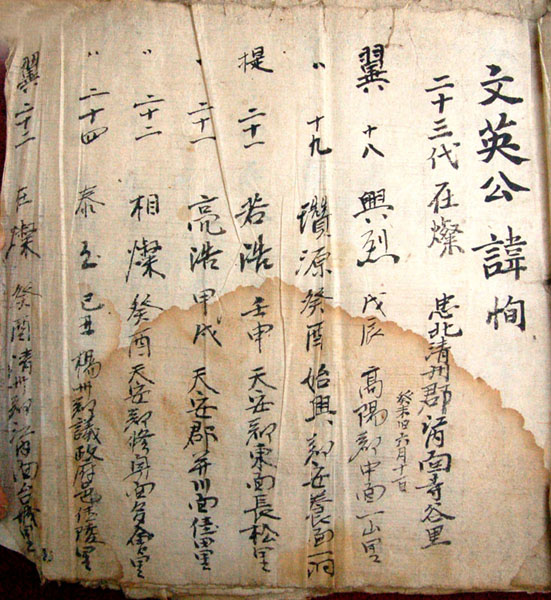 文英公 諱恂
二十三代 在燦 忠北清州郡 面寺谷里
癸未旧六月十一日
翼 十八 興烈 戊辰 高陽郡中面一山里
〃 十九 瓚源 癸酉 始興郡安養面一洞
提 二十一 若浩 壬申 天安郡東面長松里
〃 二十一 亮浩 甲戌 天安郡並川面佳田里
〃 二十二 相燦 癸酉 天安郡修身面 里
〃 二十四 泰 己丑 楊州郡議政府邑佳陵里
翼 二十二 在燦 癸酉 清州郡 面 里